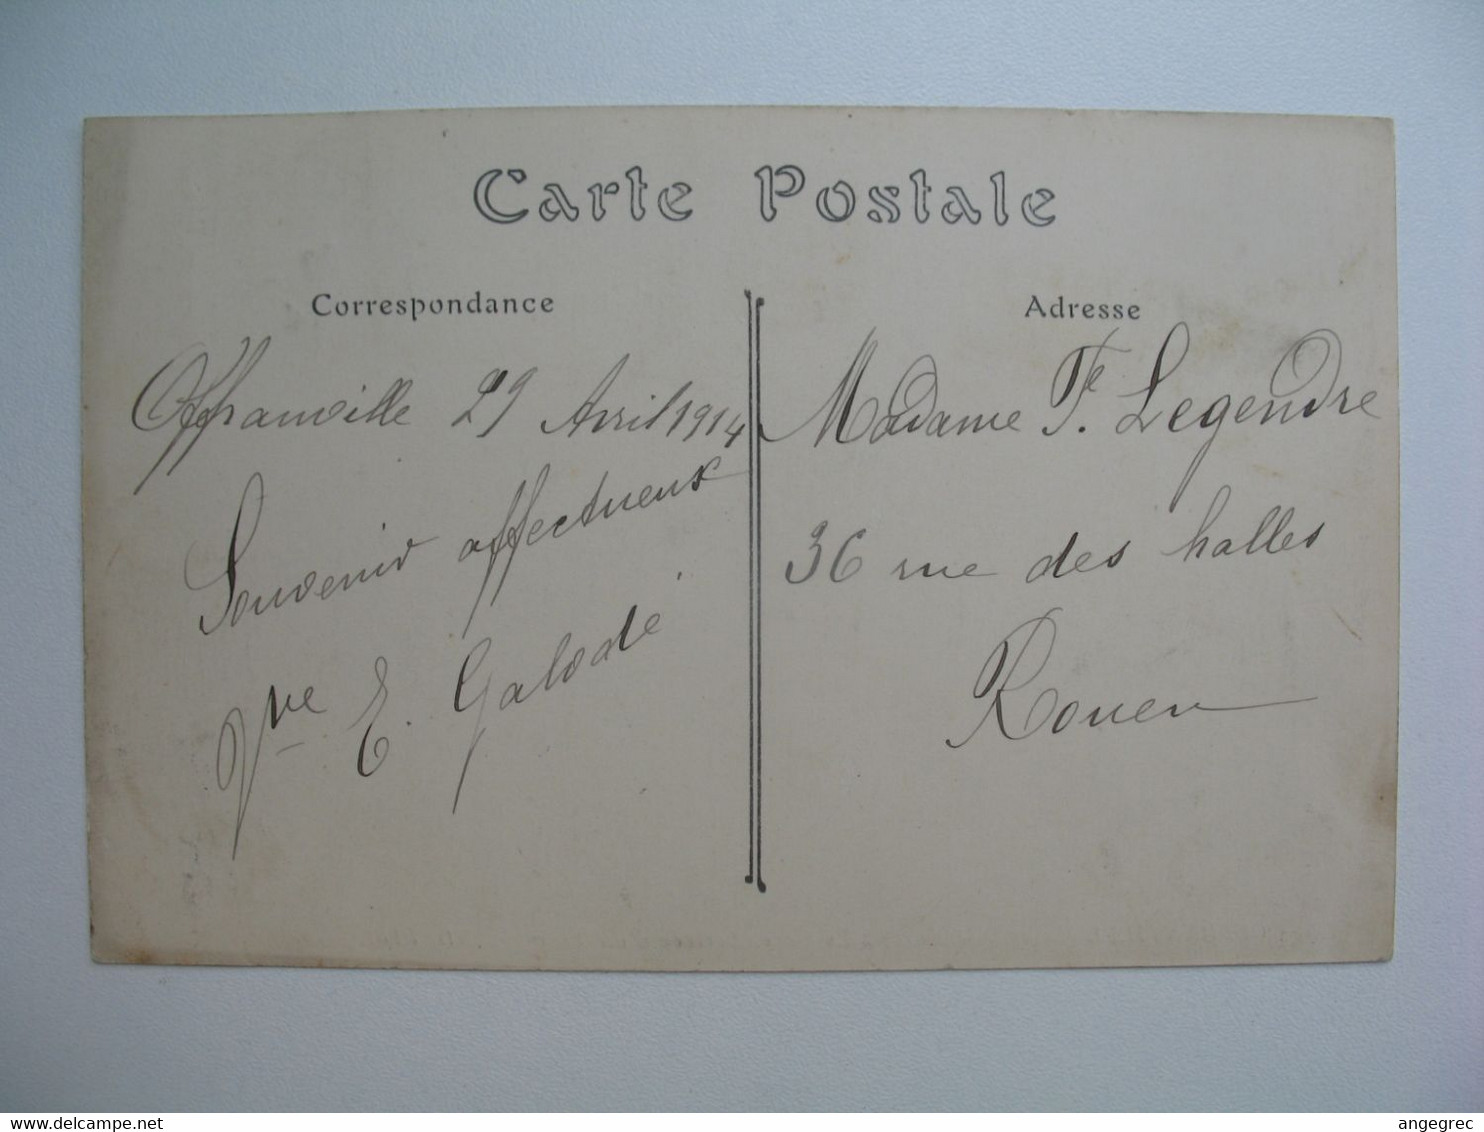 Carte Postale
Correspondance
Offranville 29 Avril 1914
Souvenir affectueux
Vve E. Galodé
Adresse
Madame F. Legendre
36 rue des halles
Rouen
www.delcampe.net
angegrec